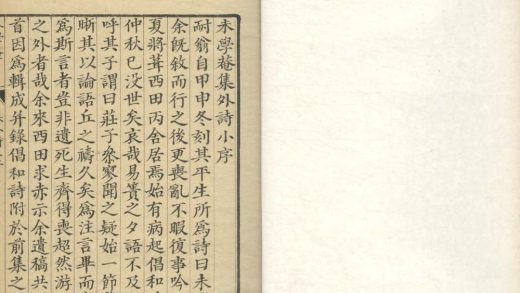 未學菴集外詩小序
耐翁自甲申冬刻其平生所爲詩曰未
余旣敘而行之後更喪亂不暇復事吟
夏將葺西田丙舍居焉始有病起倡和
仲秋已没世矣哀哉易簀之夕語不及
呼其子謂曰莊子參寥聞之疑始一節
晣其以論語丘之禱久矣爲注言畢而
爲斯言者豈非遺死生齊得喪超然游
之外者哉余來西田求赤示余遺稿共
首因爲輯成并錄倡和詩附於前集之